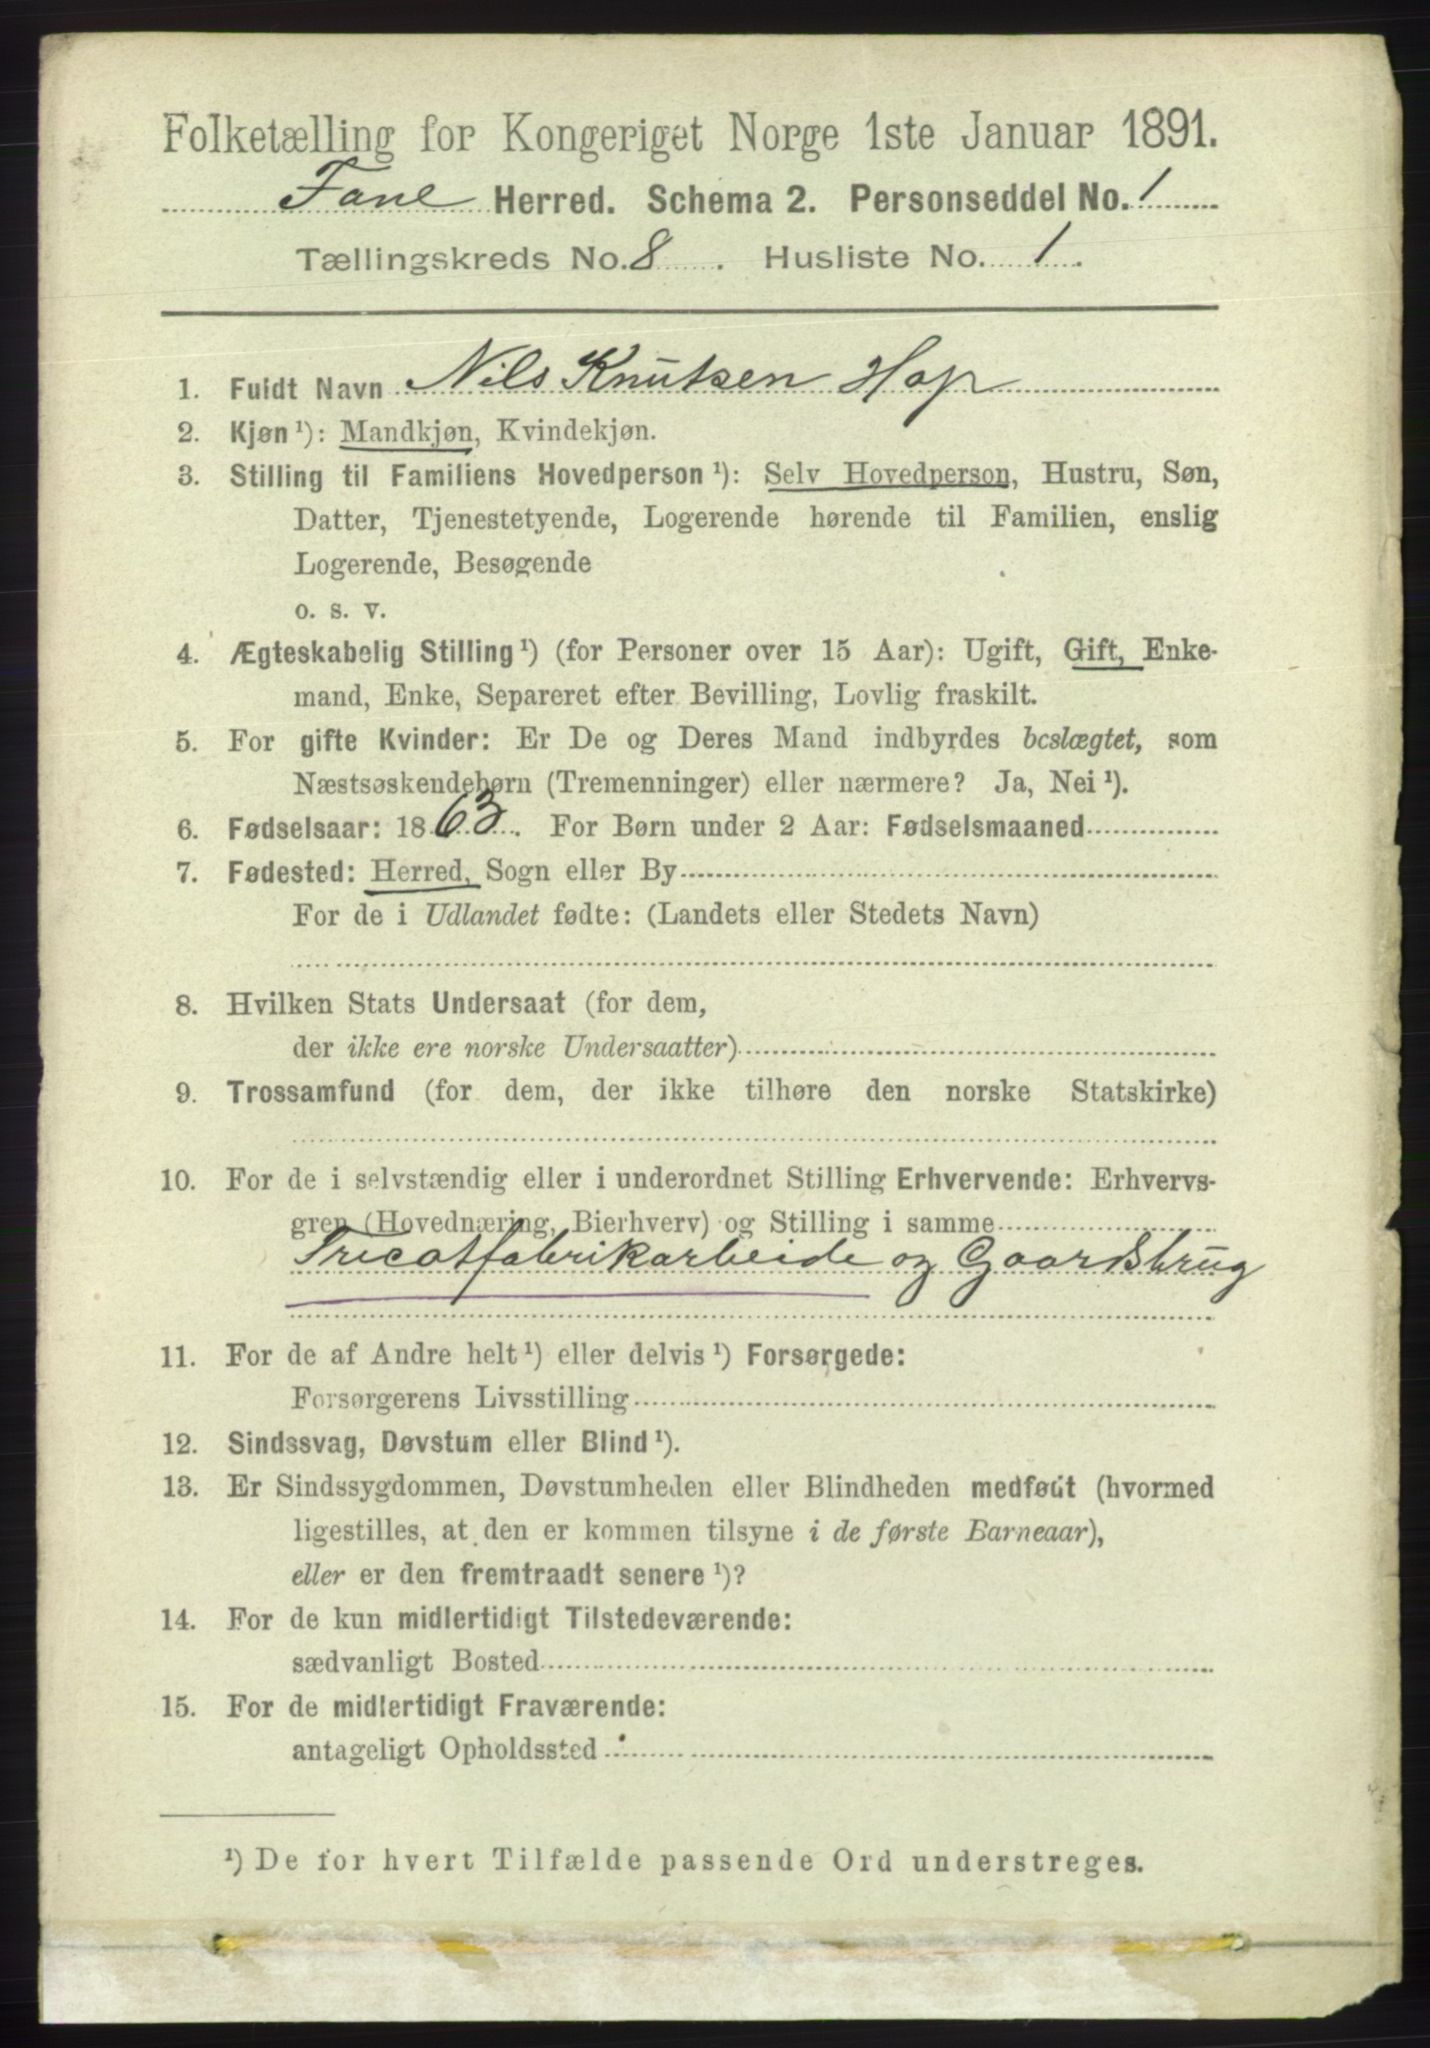 Folketælling for Kongeriget Norge 1ste Januar 1891.
Fane Herred. Schema 2. Personseddel No. 1
Tællingskreds No. 8. Husliste No. 1.
1. Fuldt Navn Nils Knutsen Hop
2. Kjøn ¹): Mandkjøn, Kvindekjøn.
3. Stilling til Familiens Hovedperson ¹): Selv Hovedperson, Hustru, Søn,
Datter, Tjenestetyende, Logerende hørende til Familien, enslig
Logerende, Besøgende
o. s. v.
4. Ægteskabelig Stilling ¹) (for Personer over 15 Aar): Ugift, Gift, Enke-
mand, Enke, Separeret efter Bevilling, Lovlig fraskilt.
5. For gifte Kvinder: Er De og Deres Mand indbyrdes beslægtet, som
Næstsøskendebørn (Tremenninger) eller nærmere? Ja, Nei ¹).
6. Fødselsaar: 1863. For Børn under 2 Aar: Fødselsmaaned
7. Fødested: Herred, Sogn eller By
For de i Udlandet fødte: (Landets eller Stedets Navn)
8. Hvilken Stats Undersaat (for dem,
der ikke ere norske Undersaatter)
9. Trossamfund (for dem, der ikke tilhøre den norske Statskirke)
10. For de i selvstændig eller i underordnet Stilling Erhvervende: Erhvervs-
gren (Hovednæring, Bierhverv) og Stilling i samme
Tricotfabrikarbeide og Gaardsbrug
11. For de af Andre helt ¹) eller delvis ¹) Forsørgede:
Forsørgerens Livsstilling
12. Sindssvag, Døvstum eller Blind ¹).
13. Er Sindssygdommen, Døvstumheden eller Blindheden medfødt (hvormed
ligestilles, at den er kommen tilsyne i de første Barneaar),
eller er den fremtraadt senere ¹)?
14. For de kun midlertidigt Tilstedeværende:
sædvanligt Bosted
15. For de midlertidigt Fraværende:
antageligt Opholdssted
¹) De for hvert Tilfælde passende Ord understreges.